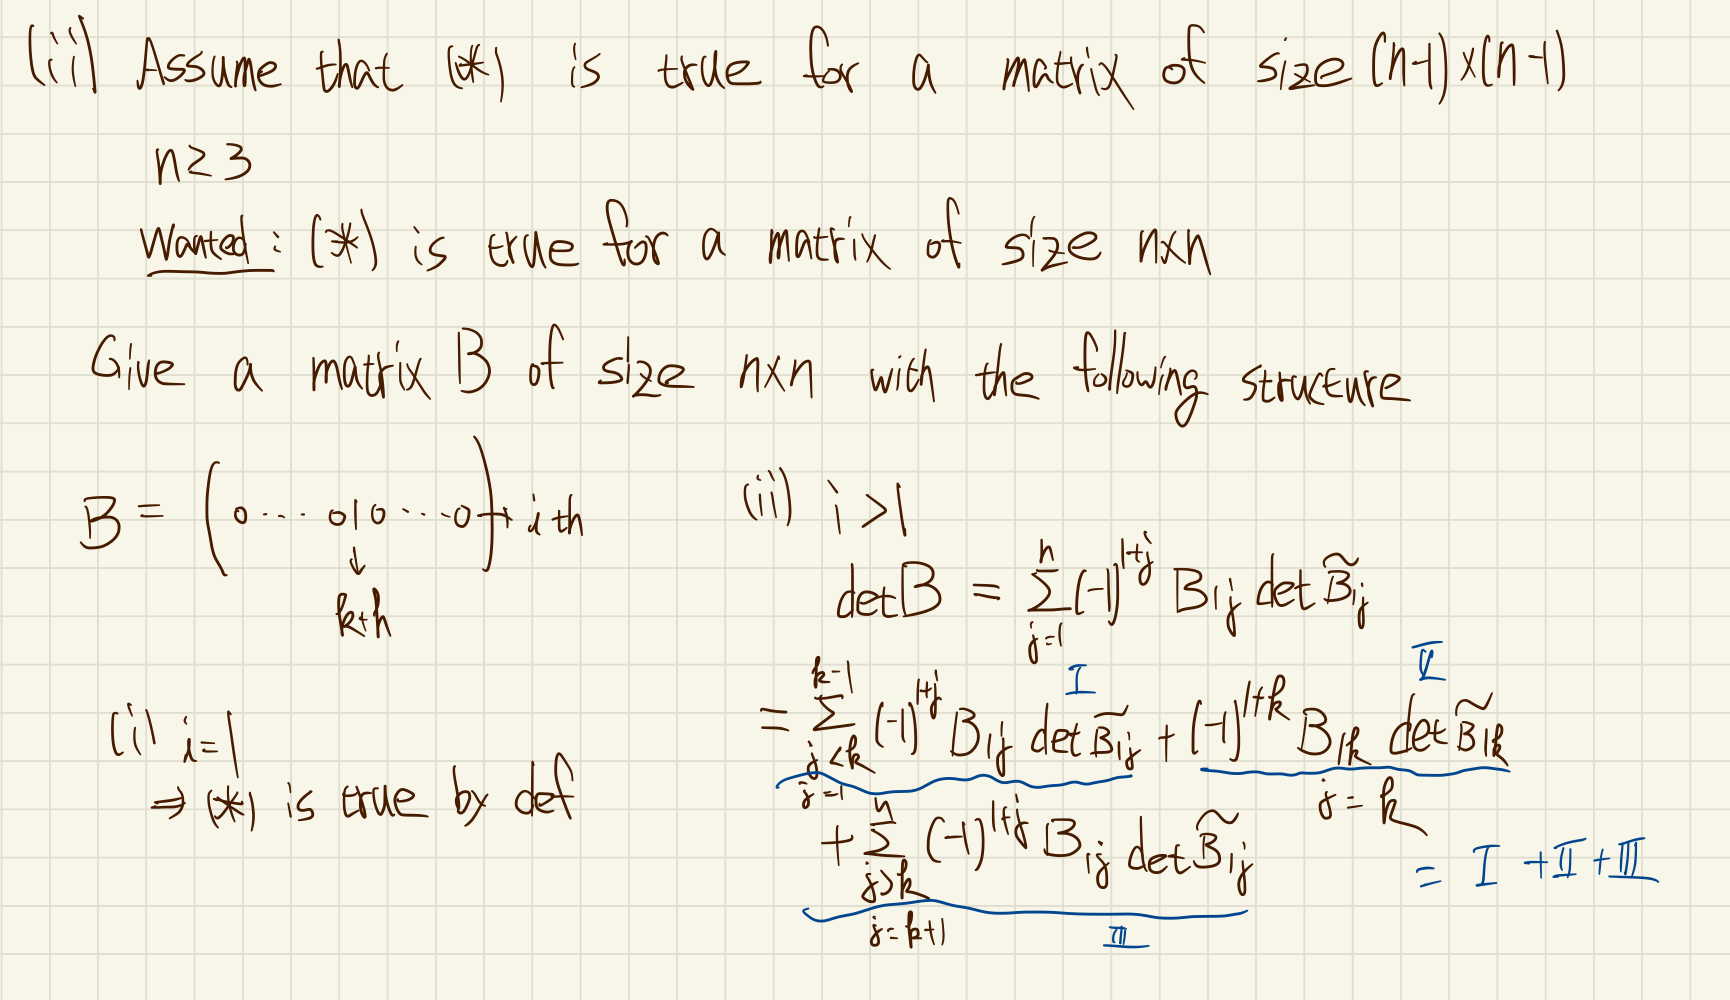 (ii) Assume that (*) is true for a matrix of size (n-1)×(n-1)
n≥3
Wanted: (*) is true for a matrix of size n×n
Give a matrix B of size n×n with the following structure
B = ( 0 ··· 0 1 0 ··· 0 ) → i th
↓
k th
(i) i=1
⇒ (*) is true by def
(ii) i > 1
det B = Σ_{j=1}^{n} (-1)^{1+j} B_{1j} det B̃_{1j}
I II
= Σ_{j<k, j=1}^{k-1} (-1)^{1+j} B_{1j} det B̃_{1j} + (-1)^{1+k} B_{1k} det B̃_{1k}
j = k
+ Σ_{j>k, j=k+1}^{n} (-1)^{1+j} B_{1j} det B̃_{1j}
III
= I + II + III